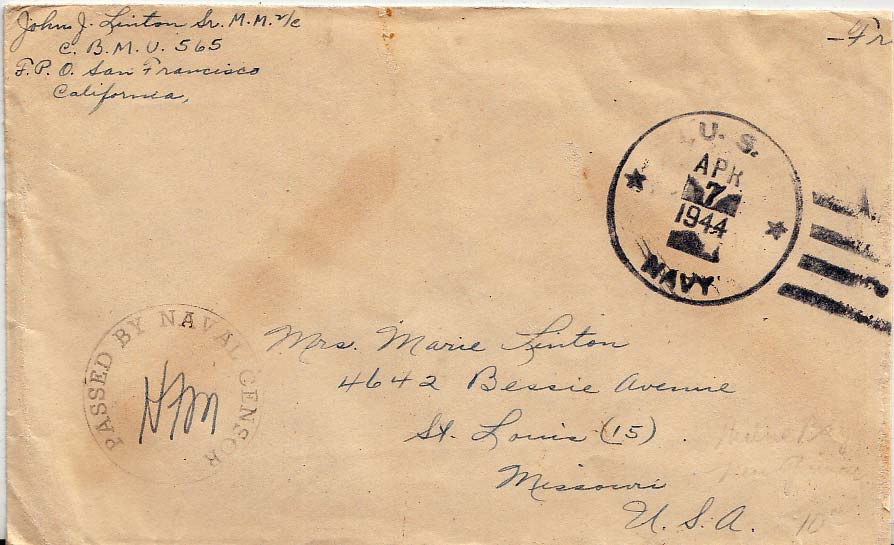 John J. Linton Sr. M.M. 2/c
C. B. M. U. 565
F. P. O. San Francisco
California,
— Fr
U. S.
APR
7
1944
NAVY
PASSED BY NAVAL CENSOR
Mrs. Marie Linton
4642 Bessie Avenue
St. Louis (15)
Missouri
U. S. A.